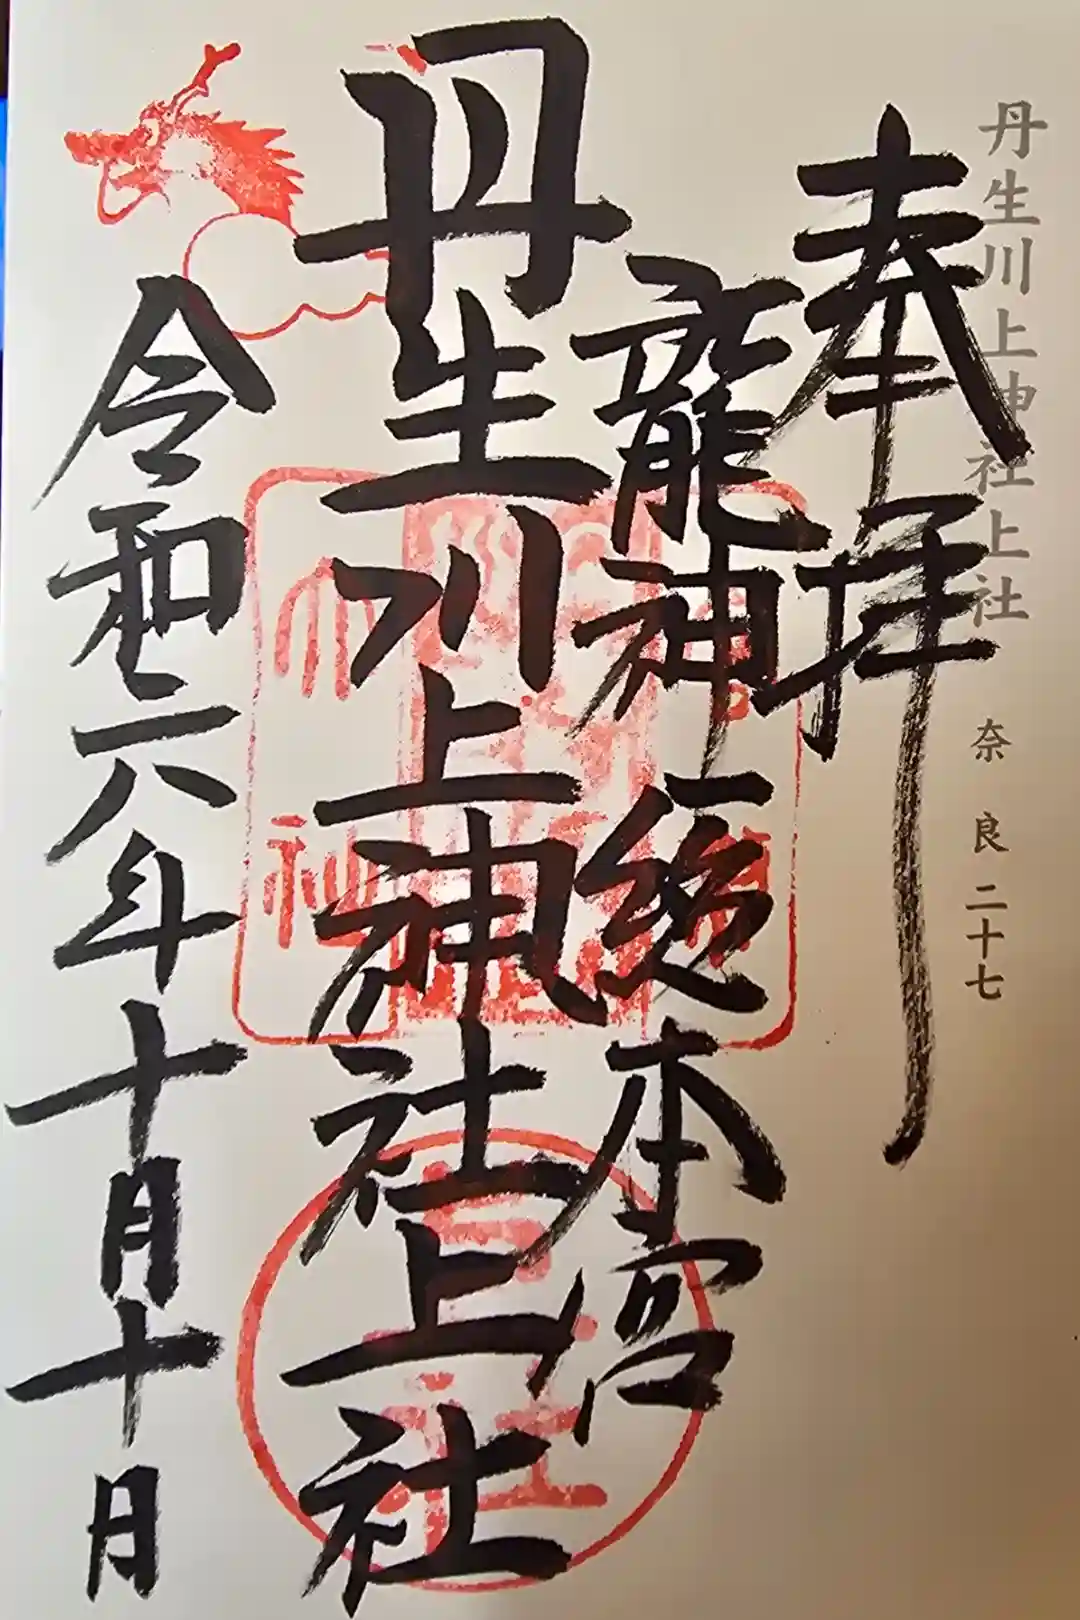 丹生川上神社上社 奈良二十七
奉拝
龍神総本宮
丹生川上神社上社
令和六年十月十日